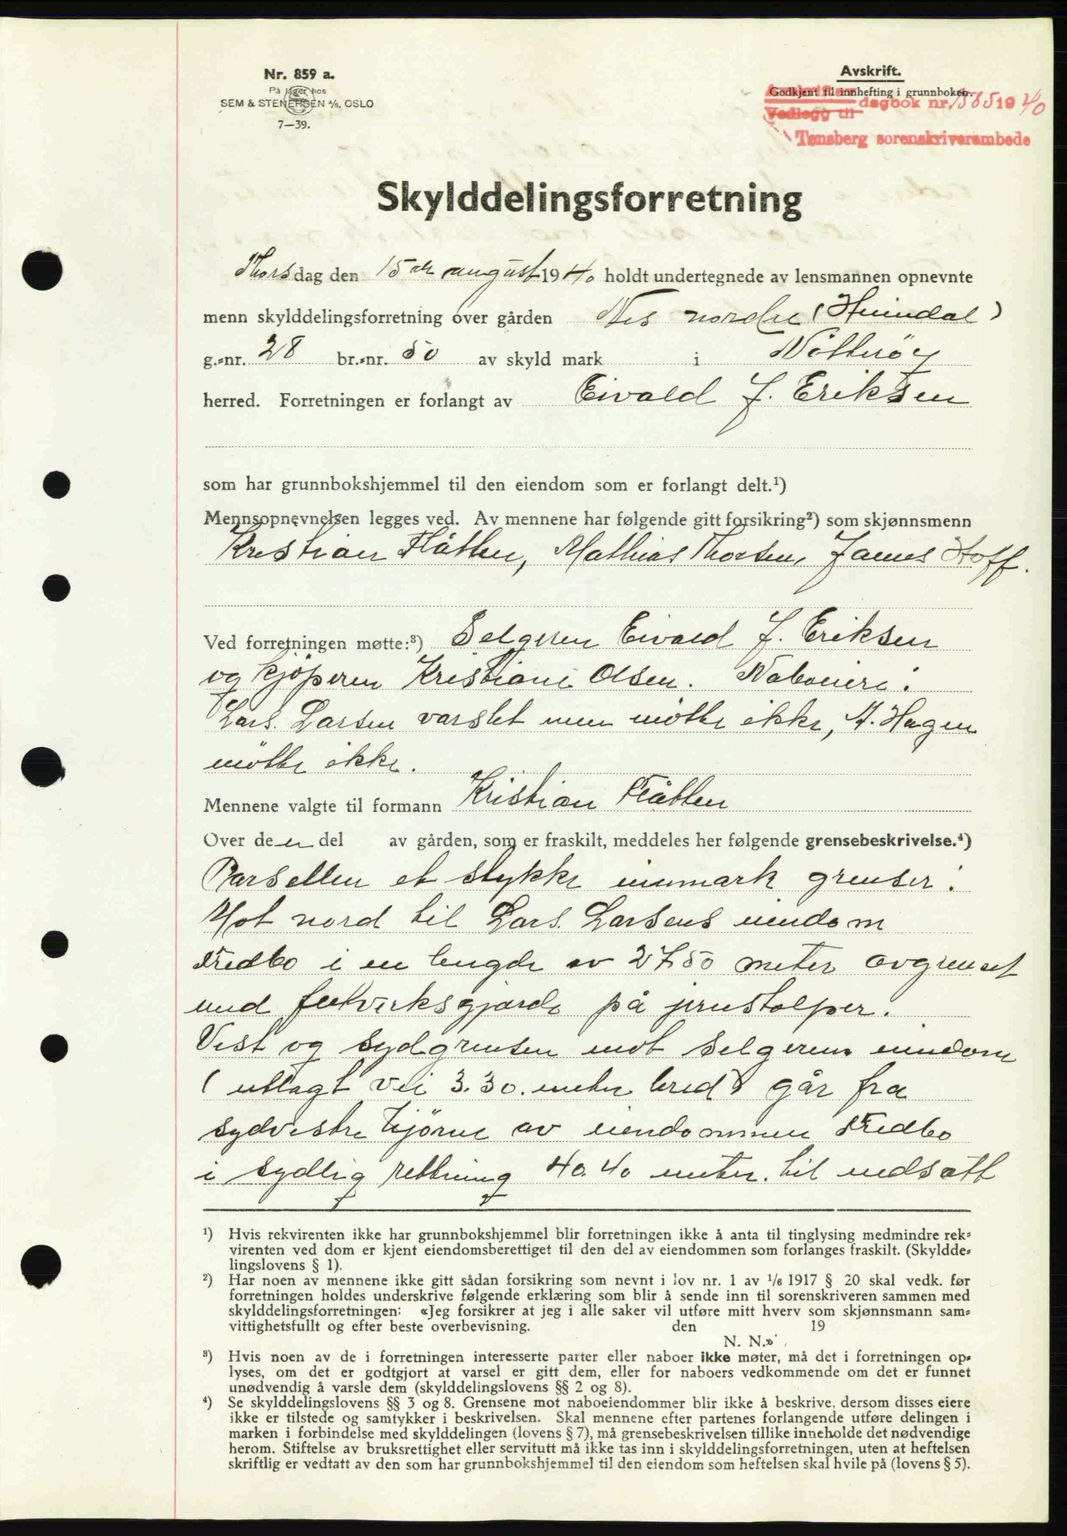 Nr. 859 a.
På lager hos
SEM & STENERSEN A/S, OSLO
7—39.
Avskrift.
Godkjent til innhefting i grunnboken.
Vedlegg til dagbok nr. 1565 1940
Tønsberg sorenskriverembede
Skylddelingsforretning
Thorsdag den 15de august 1940 holdt undertegnede av lensmannen opnevnte
menn skylddelingsforretning over gården Nes nordre (Heimdal)
g.-nr. 28 br.-nr. 50 av skyld mark i Nøtterøy
herred. Forretningen er forlangt av Eivald J. Eriksen
som har grunnbokshjemmel til den eiendom som er forlangt delt.¹)
Mennsopnevnelsen legges ved. Av mennene har følgende gitt forsikring²) som skjønnsmenn
Kristian Flåtten, Mathias Thorsen, James Hoff.
Ved forretningen møtte:³) Selgeren Eivald J. Eriksen
og kjøperen Kristiane Olsen. Naboeiere:
Lars Larsen varslet men møtte ikke, A. Hagen
møtte ikke.
Mennene valgte til formann Kristian Flåtten
Over den del av gården, som er fraskilt, meddeles her følgende grensebeskrivelse.⁴)
Parsellen et stykke innmark grenser:
Mot nord til Lars Larsens eiendom
Fredbo i en lengde av 27.50 meter avgrenset
med flettverksgjærde på jernstolper.
Vest og sydgrensen mot selgerens eiendom
(utlagt vei 3.30. meter bred) går fra
sydvestre hjørne av eiendommen Fredbo
i sydlig rettning 40.40 meter. til nedsatt
¹) Hvis rekvirenten ikke har grunnbokshjemmel blir forretningen ikke å anta til tinglysing medmindre rek-
virenten ved dom er kjent eiendomsberettiget til den del av eiendommen som forlanges fraskilt. (Skyldde-
lingslovens § 1).
²) Har noen av mennene ikke gitt sådan forsikring som nevnt i lov nr. 1 av 1/6 1917 § 20 skal vedk. før
forretningen holdes underskrive følgende erklæring som blir å sende inn til sorenskriveren sammen med
skylddelingsforretningen: «Jeg forsikrer at jeg i alle saker vil utføre mitt hverv som skjønnsmann sam-
vittighetsfullt og efter beste overbevisning. den 19
N. N.»
³) Hvis noen av de i forretningen interesserte parter eller naboer ikke møter, må det i forretningen op-
lyses, om det er godtgjort at varsel er gitt dem, eller for naboers vedkommende om det er funnet
unødvendig å varsle dem (skylddelingslovens §§ 2 og 8).
⁴) Se skylddelingslovens §§ 3 og 8. Grensene mot naboeiendommer blir ikke å beskrive, dersom disses eiere
ikke er tilstede og samtykker i beskrivelsen. Skal mennene efter partenes forlangende utføre delingen i
marken i forbindelse med skylddelingen (lovens § 7), må grensebeskrivelsen tillike inneholde det nødvendige
herom. Stiftelse av bruksrettighet eller servitutt må ikke tas inn i skylddelingsforretningen, uten at heftelsen
skriftlig er vedtatt av den som har grunnbokshjemmel til den eiendom som heftelsen skal hvile på (lovens § 5).